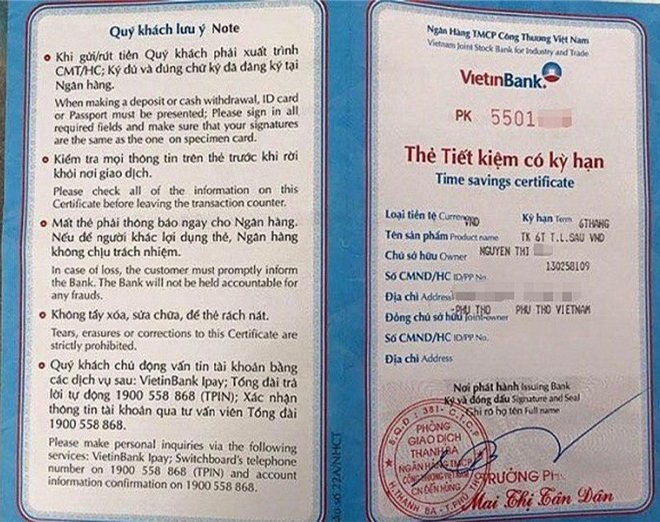 Quý khách lưu ý Note
Khi gửi/rút tiền Quý khách phải xuất trình
CMT/HC; Ký đủ và đúng chữ ký đã đăng ký tại
Ngân hàng.
When making a deposit or cash withdrawal, ID card
or Passport must be presented; Please sign in all
required fields and make sure that your signatures
are the same as the one on specimen card.
Kiểm tra mọi thông tin trên thẻ trước khi rời
khỏi nơi giao dịch.
Please check all of the information on this
Certificate before leaving the transaction counter.
Mất thẻ phải thông báo ngay cho Ngân hàng.
Nếu để người khác lợi dụng thẻ, Ngân hàng
không chịu trách nhiệm.
In case of loss, the customer must promptly inform
the Bank. The Bank will not be held accountable for
any frauds.
Không tẩy xóa, sửa chữa, để thẻ rách nát.
Tears, erasures or corrections to this Certificate are
strictly prohibited.
Quý khách chủ động vấn tin tài khoản bằng
các dịch vụ sau: VietinBank Ipay; Tổng đài trả
lời tự động 1900 558 868 (TPIN); Xác nhận
thông tin tài khoản qua tư vấn viên Tổng đài
1900 558 868.
Please make personal inquiries via the following
services: VietinBank Ipay; Switchboard's telephone
number on 1900 558 868 (TPIN) and account
information confirmation on 1900 558 868.
số 22A/NHCT
Ngân Hàng TMCP Công Thương Việt Nam
Vietnam Joint Stock Bank for Industry and Trade
VietinBank
PK 5501
Thẻ Tiết kiệm có kỳ hạn
Time savings certificate
Loại tiền tệ Currency VND Kỳ hạn Term 6THANG
Tên sản phẩm Product name TK 6T T.L.SAU VND
Chủ sở hữu Owner NGUYEN THI
Số CMND/HC ID/PP No. 130258109
Địa chỉ Address
PHU THO PHU THO VIETNAM
Đồng chủ sở hữu Joint-owner
Số CMND/HC ID/PP No.
Địa chỉ Address
Nơi phát hành Issuing Bank
Ký và đóng dấu Signature and Seal
Ghi rõ họ tên Full name
PHÒNG
GIAO DỊCH
THANH BA
NGÂN HÀNG TMCP
CÔNG THƯƠNG VIỆT NAM
CN ĐỀN HÙNG
H. THANH BA - T. PHÚ
TRƯỞNG PH
Mai Thị Tân Dân